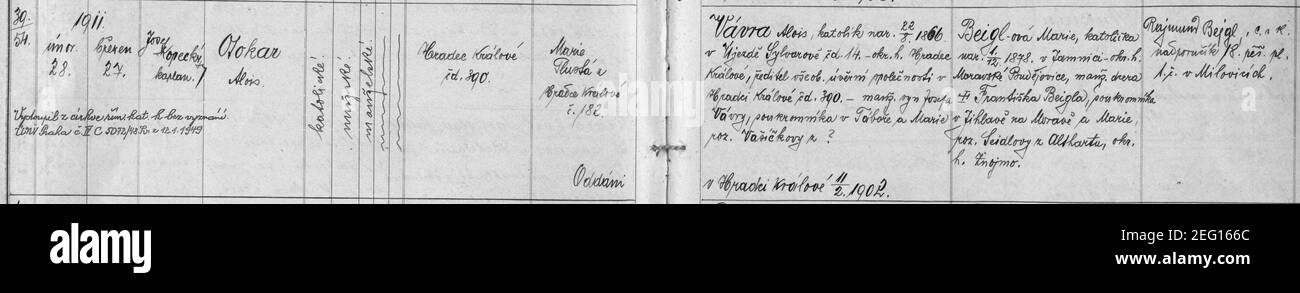 39.
54.
1911
únor
28.
březen
27.
Josef
Kopecký
kaplan.
Otokar
Alois.
katolické
mužské
manželské
Hradec Králové
čd. 390.
Marie
Hradec Králové
č. 182.
Oddáni
Vystoupil z církve řím. kat. b. bez vyznání.
12.1.1949
Vávra Alois, katolík nar. 22/8. 1866
v Újezdě Sylvarově čd. 14. okr. h. Hradec
Králové, ředitel všeob. úvěrní společnosti v
Hradci Králové čd. 390. – manž. syn Josefa
Vávry, soukromníka v Táboře a Marie
roz. Vašíčkovy z ?
v Hradci Králové 11/2. 1902.
Beigl-ová Marie, katolička
nar. 1/12. 1878. v Jamnici okr. h.
Moravské Budějovice, manž. dcera
† Františka Beigla, soukromníka
v Jihlavě na Moravě a Marie,
roz. Seidlovy z Althartu, okr.
h. Znojmo.
Rajmund Bejgl, c. a k.
nadporučík 18. pěš. pl.
t. č. v Milovicích.
alamy
Image ID: 2EG166C
www.alamy.com